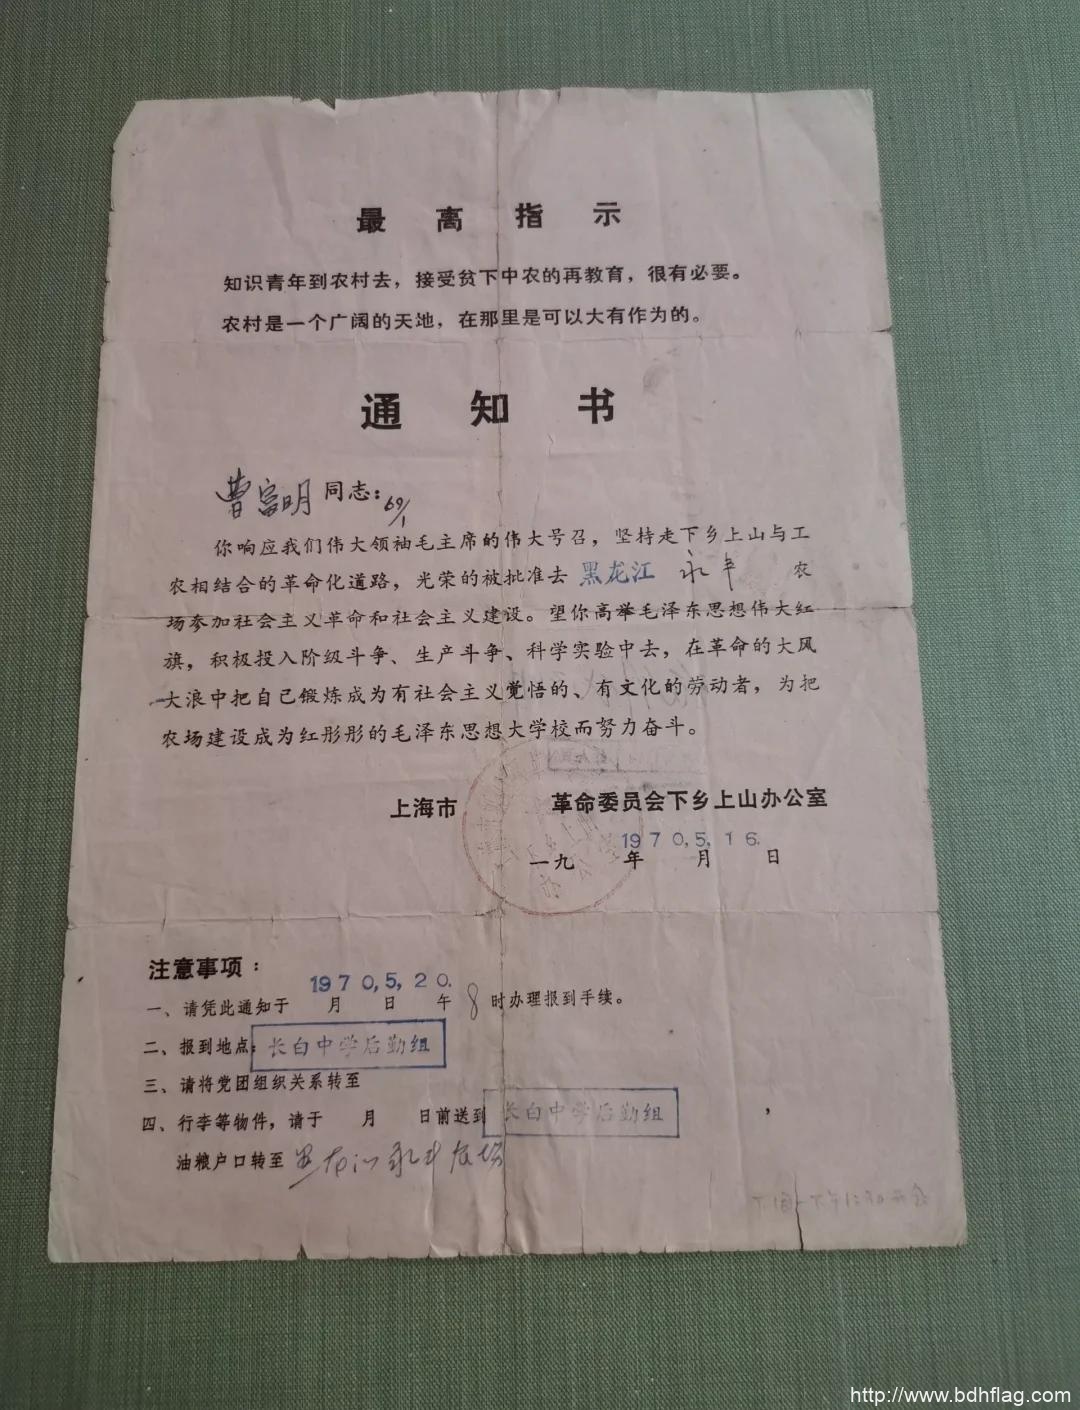 最高指示
知识青年到农村去，接受贫下中农的再教育，很有必要。
农村是一个广阔的天地，在那里是可以大有作为的。
通知书
曹富明同志：69/1
你响应我们伟大领袖毛主席的伟大号召，坚持走下乡上山与工
农相结合的革命化道路，光荣的被批准去 黑龙江 永丰 农
场参加社会主义革命和社会主义建设。望你高举毛泽东思想伟大红
旗，积极投入阶级斗争、生产斗争、科学实验中去，在革命的大风
大浪中把自己锻炼成为有社会主义觉悟的、有文化的劳动者，为把
农场建设成为红彤彤的毛泽东思想大学校而努力奋斗。
上海市 革命委员会下乡上山办公室
1970.5.16.
一九 年 月 日
注意事项：
1970.5.20.
一、请凭此通知于 月 日 午 8 时办理报到手续。
二、报到地点：长白中学后勤组
三、请将党团组织关系转至
四、行李等物件，请于 月 日前送到 长白中学后勤组，
油粮户口转至 黑龙江永丰农场
http://www.bdhflag.com